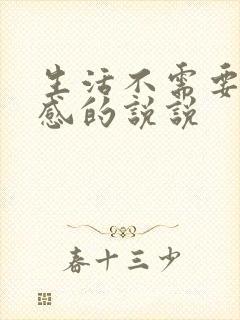 生活不需要
感的说说
春十三少